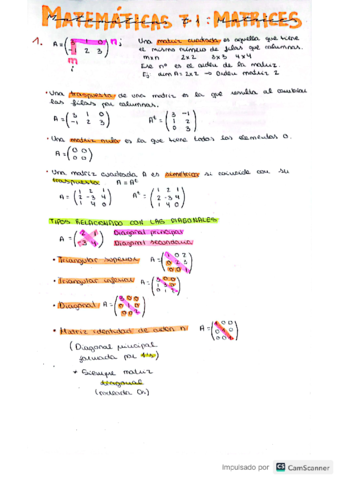 MATEMÁTICAS T.1: MATRICES
1. A= (3 1 0 / -1 2 3) n; Una matriz cuadrada es aquella que tiene
m el mismo número de filas que columnas.
i mxn 2x2 3x3 4x4
Ese nº es el orden de la matriz.
Ej: dim A= 2x2 → Orden matriz 2
· Una traspuesta de una matriz es la que resulta al cambiar
las filas por columnas.
A= (3 1 0 / -1 2 3) Aᵗ = (3 -1 / 1 2 / 0 3)
· Una matriz nula es la que tiene todos los elementos 0.
A= (0 0 / 0 0)
· Una matriz cuadrada A es simétrica si coincide con su
traspuesta A= Aᵗ
A= (1 2 1 / 2 -3 4 / 1 4 0) Aᵗ = (1 2 1 / 2 -3 4 / 1 4 0)
TIPOS RELACIONADO CON LAS DIAGONALES
Diagonal principal
Diagonal secundaria
· Triangular superior A=
· Triangular inferior A=
· Diagonal A=
· Matriz identidad de orden n A=
(Diagonal principal
formada por
* Siempre matriz
diagonal
Impulsado por CS CamScanner